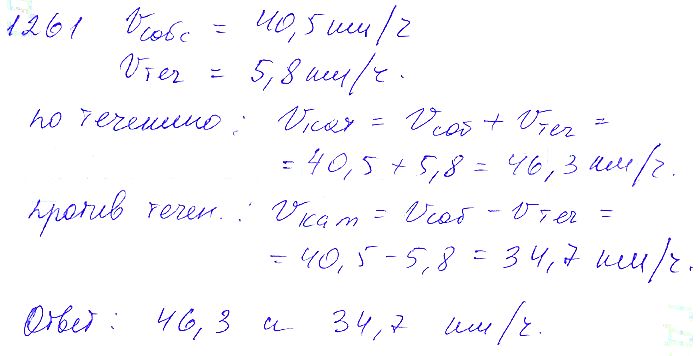 1261 Vсобс = 40,5 км/ч
Vтеч = 5,8 км/ч.
по течению: Vкат = Vсоб + Vтеч =
= 40,5 + 5,8 = 46,3 км/ч.
против течен.: Vкат = Vсоб - Vтеч =
= 40,5 - 5,8 = 34,7 км/ч.
Ответ: 46,3 и 34,7 км/ч.